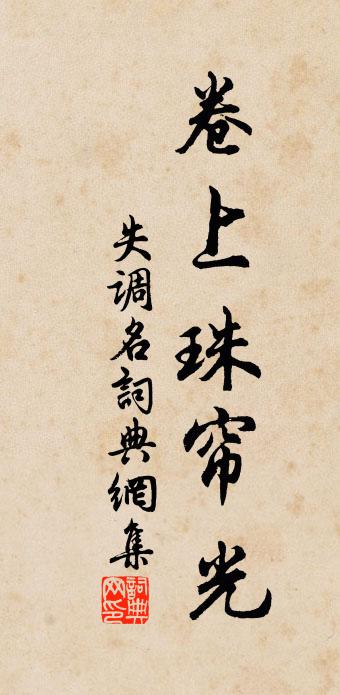 卷上珠帘光
失调名詞典網集
詞典网印